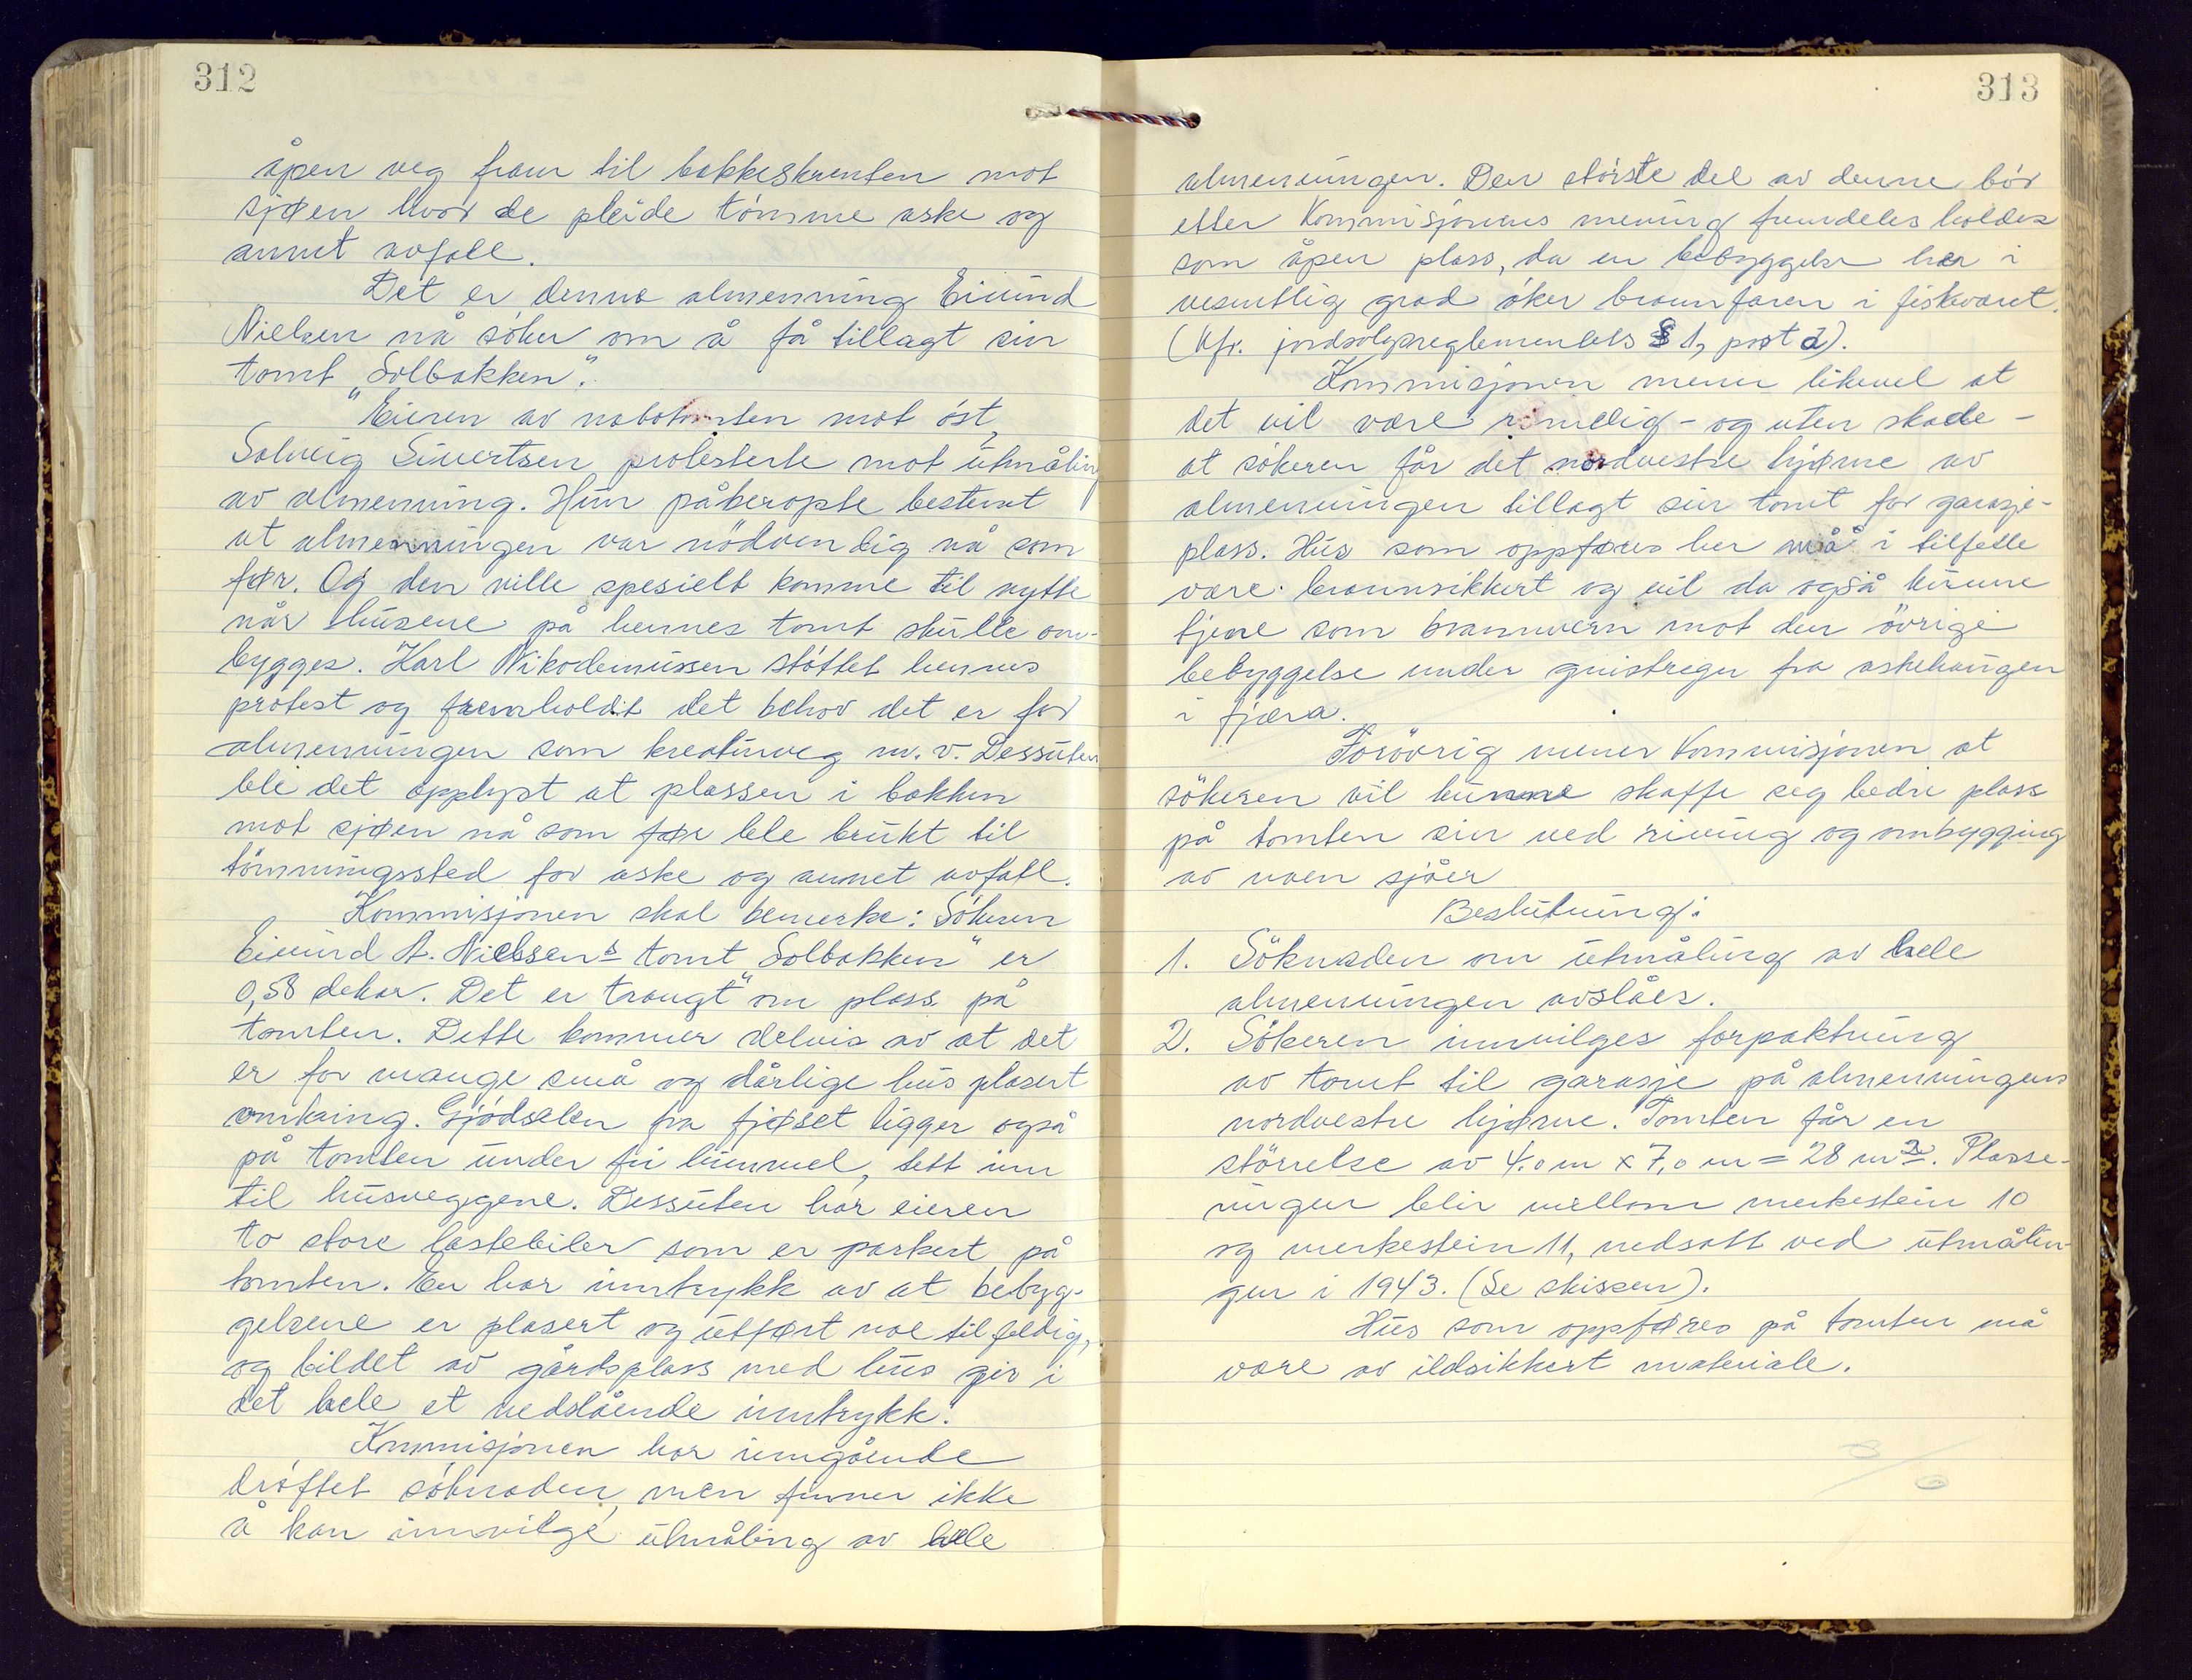 312
åpen veg fram til bakkeskrenten mot
sjøen hvor de pleide tömme aske og
annet avfall.
Det er denne almenning Eivind
Nielsen nå söker om å få tillagt sin
tomt „Solbakken".
Eieren av nabotomten mot öst,
Solveig Sivertsen protesterte mot utmåling
av almenning. Hun påberopte bestemt
at almenningen var nödvendig nå som
før. Og den ville spesielt komme til nytte
når husene på hennes tomt skulle om-
bygges. Karl Nikodemussen støttet hennes
protest og fremholdt det behov det er for
almenningen som kreaturveg m.v. Dessuten
ble det opplyst at plassen i bakken
mot sjøen nå som før ble brukt til
tömmingssted for aske og annet avfall.
Kommisjonen skal bemerke: Sökeren
Eivind A. Nielsens tomt „Solbakken" er
0,58 dekar. Det er trangt om plass på
tomten. Dette kommer delvis av at det
er for mange små og dårlige hus plasert
omkring. Gjödselen fra fjøset ligger også
på tomten under fri himmel, tett inn
til husveggene. Dessuten har eieren
to store lastebiler som er parkert på
tomten. En har inntrykk av at bebyg-
gelsene er plasert og utført noe tilfeldig,
og bildet av gårdsplass med hus gir i
det hele et nedslående inntrykk.
Kommisjonen har inngående
dröftet söknaden, men finner ikke
å kan innvilge utmåling av hele
313
almenningen. Den störste del av denne bör
etter Kommisjonens mening fremdeles holdes
som åpen plass, da en bebyggelse her i
vesentlig grad öker brannfaren i fiskeværet.
(Kfr. jordsalgsreglementets § 1, post 2).
Kommisjonen mener likevel at
det vil være rimelig - og uten skade -
at sökeren får det nordvestre hjørne av
almenningen tillagt sin tomt for garasje-
plass. Hus som oppføres her må i tilfelle
være brannsikkert og vil da også kunne
tjene som brannvern mot den övrige
bebyggelse under gnistregn fra askehaugen
i fjæra.
Forövrig mener Kommisjonen at
sökeren vil kunne skaffe seg bedre plass
på tomten sin ved riving og ombygging
av noen sjåer
Beslutning:
1. Söknaden om utmåling av hele
almenningen avslåes.
2. Sökeren innvilges forpaktning
av tomt til garasje på almenningens
nordvestre hjørne. Tomten får en
störrelse av 4.0 m x 7,0 m = 28 m2. Plasse-
ringen blir mellom merkestein 10
og merkestein 11, nedsatt ved utmålin-
gen i 1943. (Se skissen).
Hus som oppføres på tomten må
være av ildsikkert materiale.